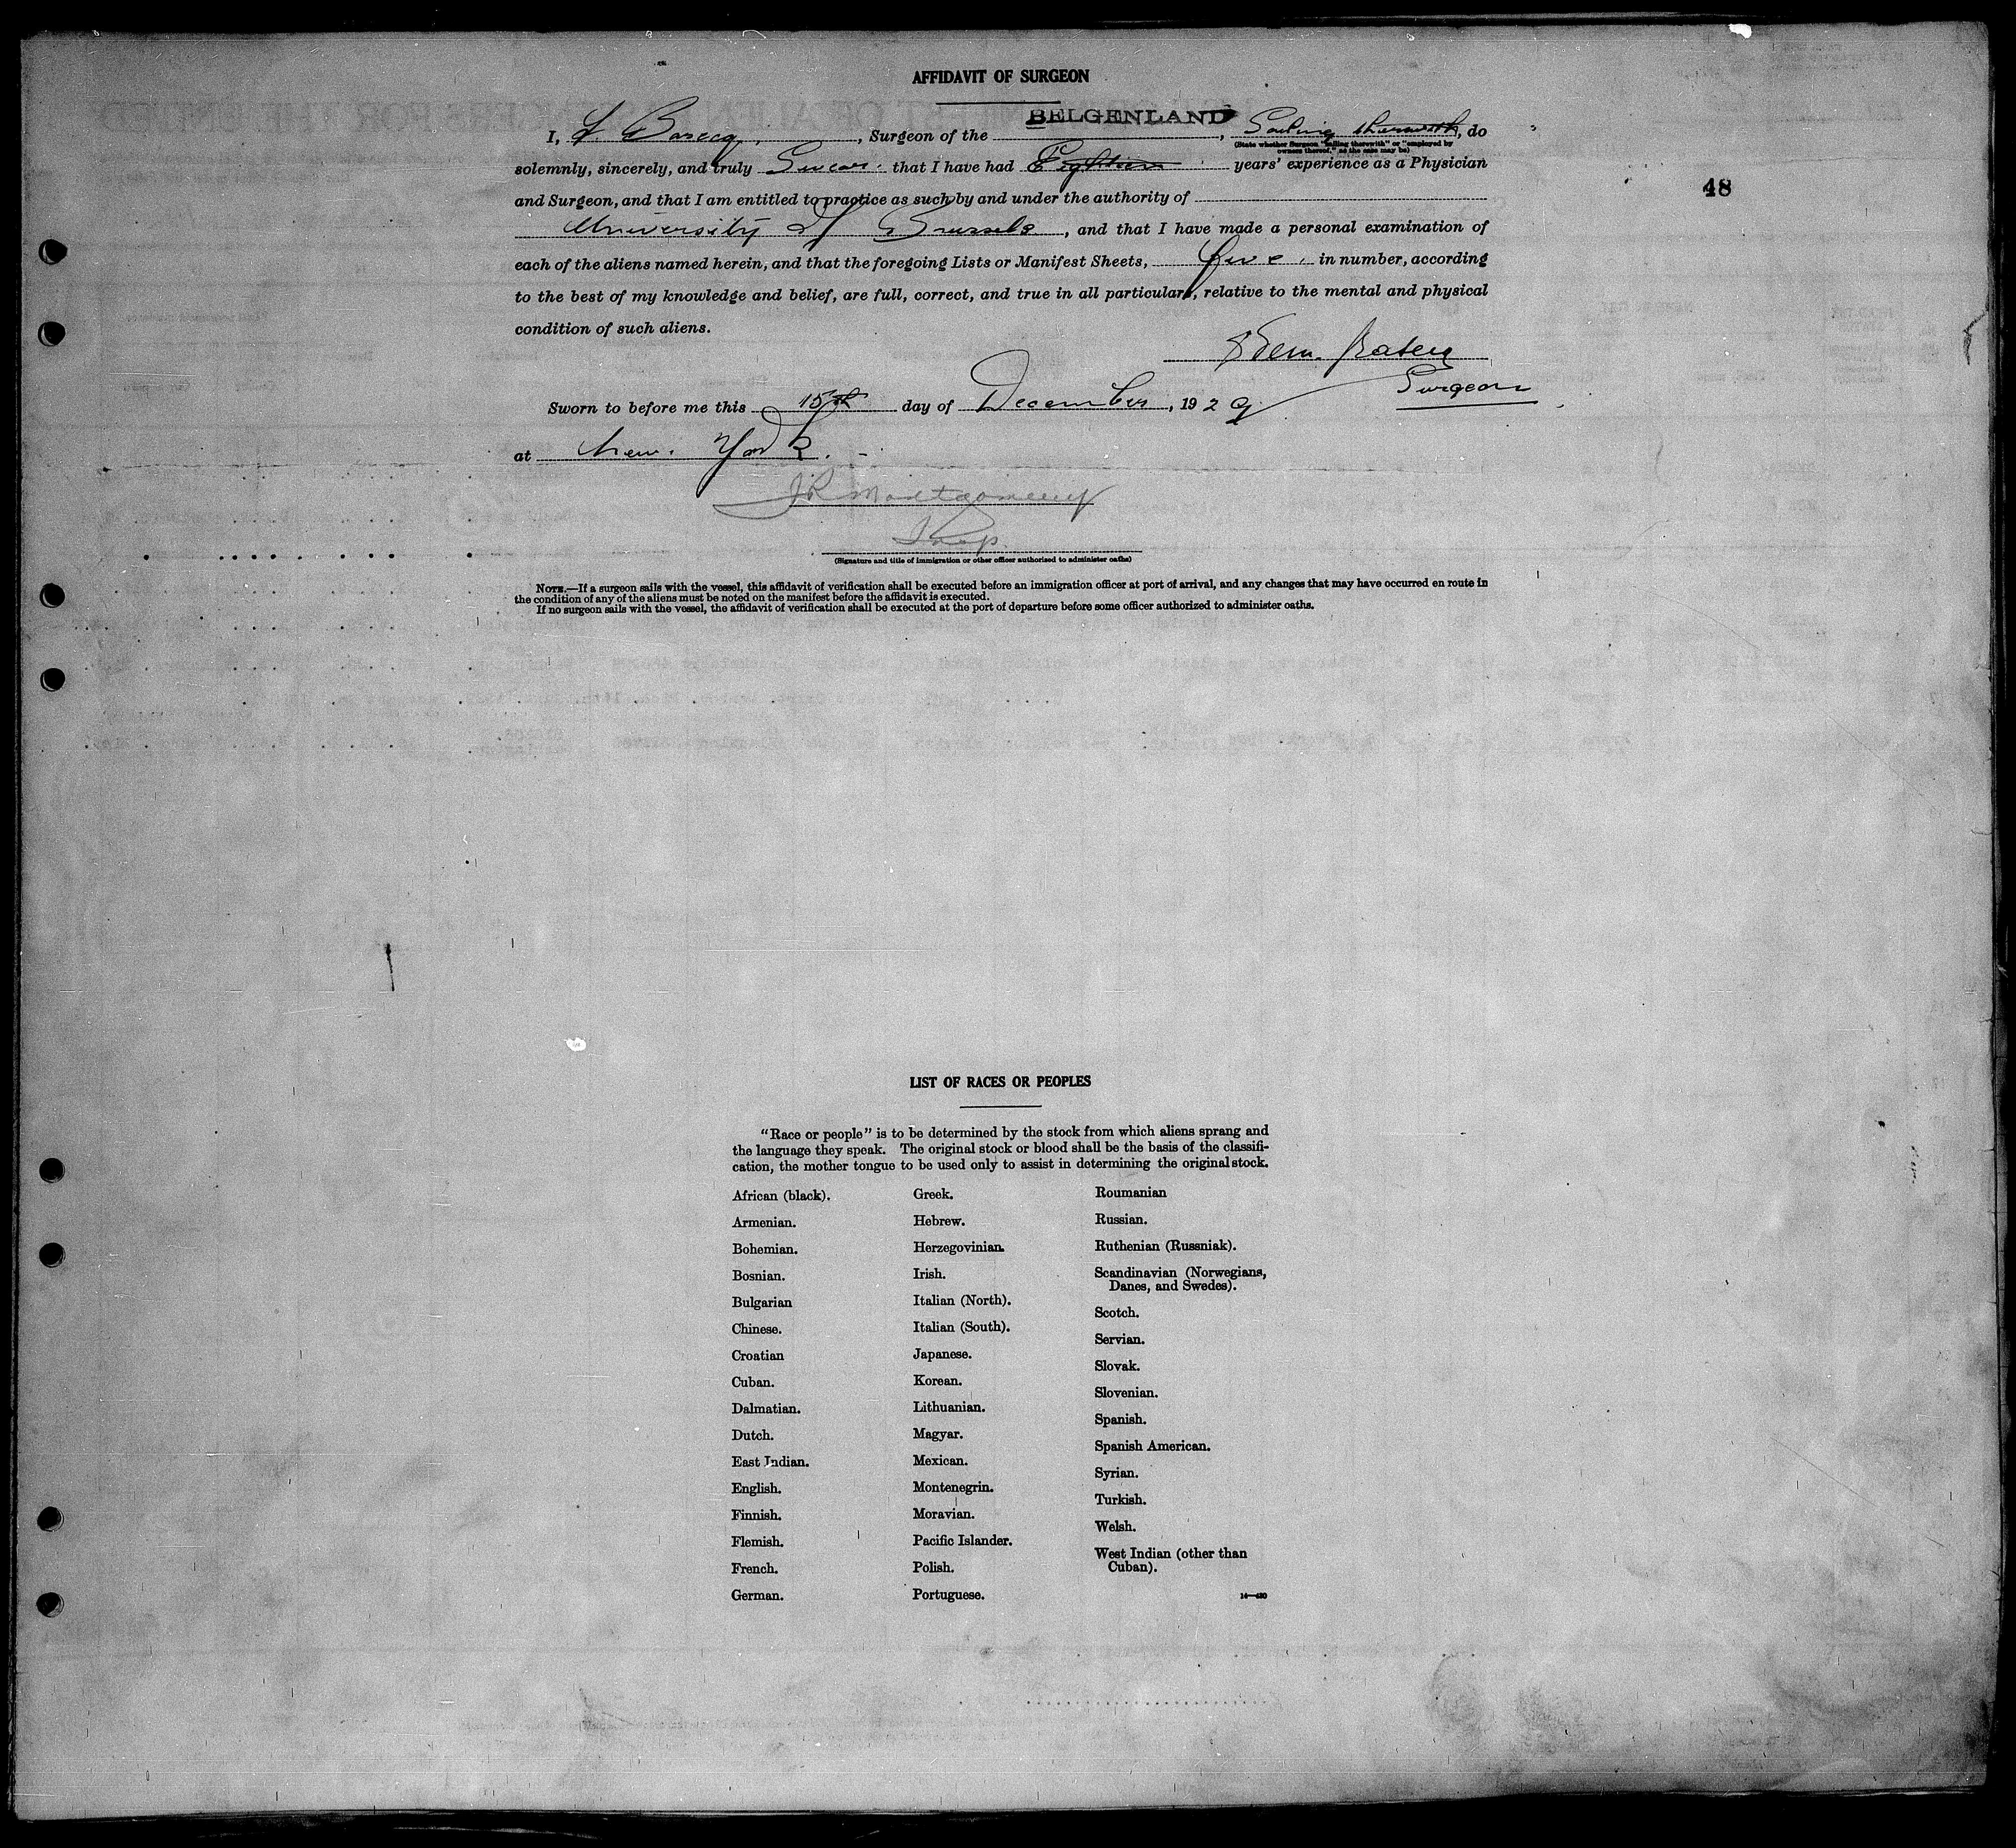 AFFIDAVIT OF SURGEON
I, , Surgeon of the BELGENLAND, Sailing therewith, do
(State whether Surgeon "sailing therewith" or "employed by
owners thereof," as the case may be)
solemnly, sincerely, and truly Swear that I have had Eighteen years' experience as a Physician
48
and Surgeon, and that I am entitled to practice as such by and under the authority of
University of Brussels, and that I have made a personal examination of
each of the aliens named herein, and that the foregoing Lists or Manifest Sheets, in number, according
to the best of my knowledge and belief, are full, correct, and true in all particulars, relative to the mental and physical
condition of such aliens.
Surgeon
Sworn to before me this 15th day of December, 1929
at New York.
JR Montgomery
Insp.
(Signature and title of immigration or other officer authorized to administer oaths)
NOTE.—If a surgeon sails with the vessel, this affidavit of verification shall be executed before an immigration officer at port of arrival, and any changes that may have occurred en route in
the condition of any of the aliens must be noted on the manifest before the affidavit is executed.
If no surgeon sails with the vessel, the affidavit of verification shall be executed at the port of departure before some officer authorized to administer oaths.
LIST OF RACES OR PEOPLES
"Race or people" is to be determined by the stock from which aliens sprang and
the language they speak. The original stock or blood shall be the basis of the classifi-
cation, the mother tongue to be used only to assist in determining the original stock.
African (black).
Armenian.
Bohemian.
Bosnian.
Bulgarian
Chinese.
Croatian
Cuban.
Dalmatian.
Dutch.
East Indian.
English.
Finnish.
Flemish.
French.
German.
Greek.
Hebrew.
Herzegovinian.
Irish.
Italian (North).
Italian (South).
Japanese.
Korean.
Lithuanian.
Magyar.
Mexican.
Montenegrin.
Moravian.
Pacific Islander.
Polish.
Portuguese.
Roumanian
Russian.
Ruthenian (Russniak).
Scandinavian (Norwegians,
Danes, and Swedes).
Scotch.
Servian.
Slovak.
Slovenian.
Spanish.
Spanish American.
Syrian.
Turkish.
Welsh.
West Indian (other than
Cuban).
14—430